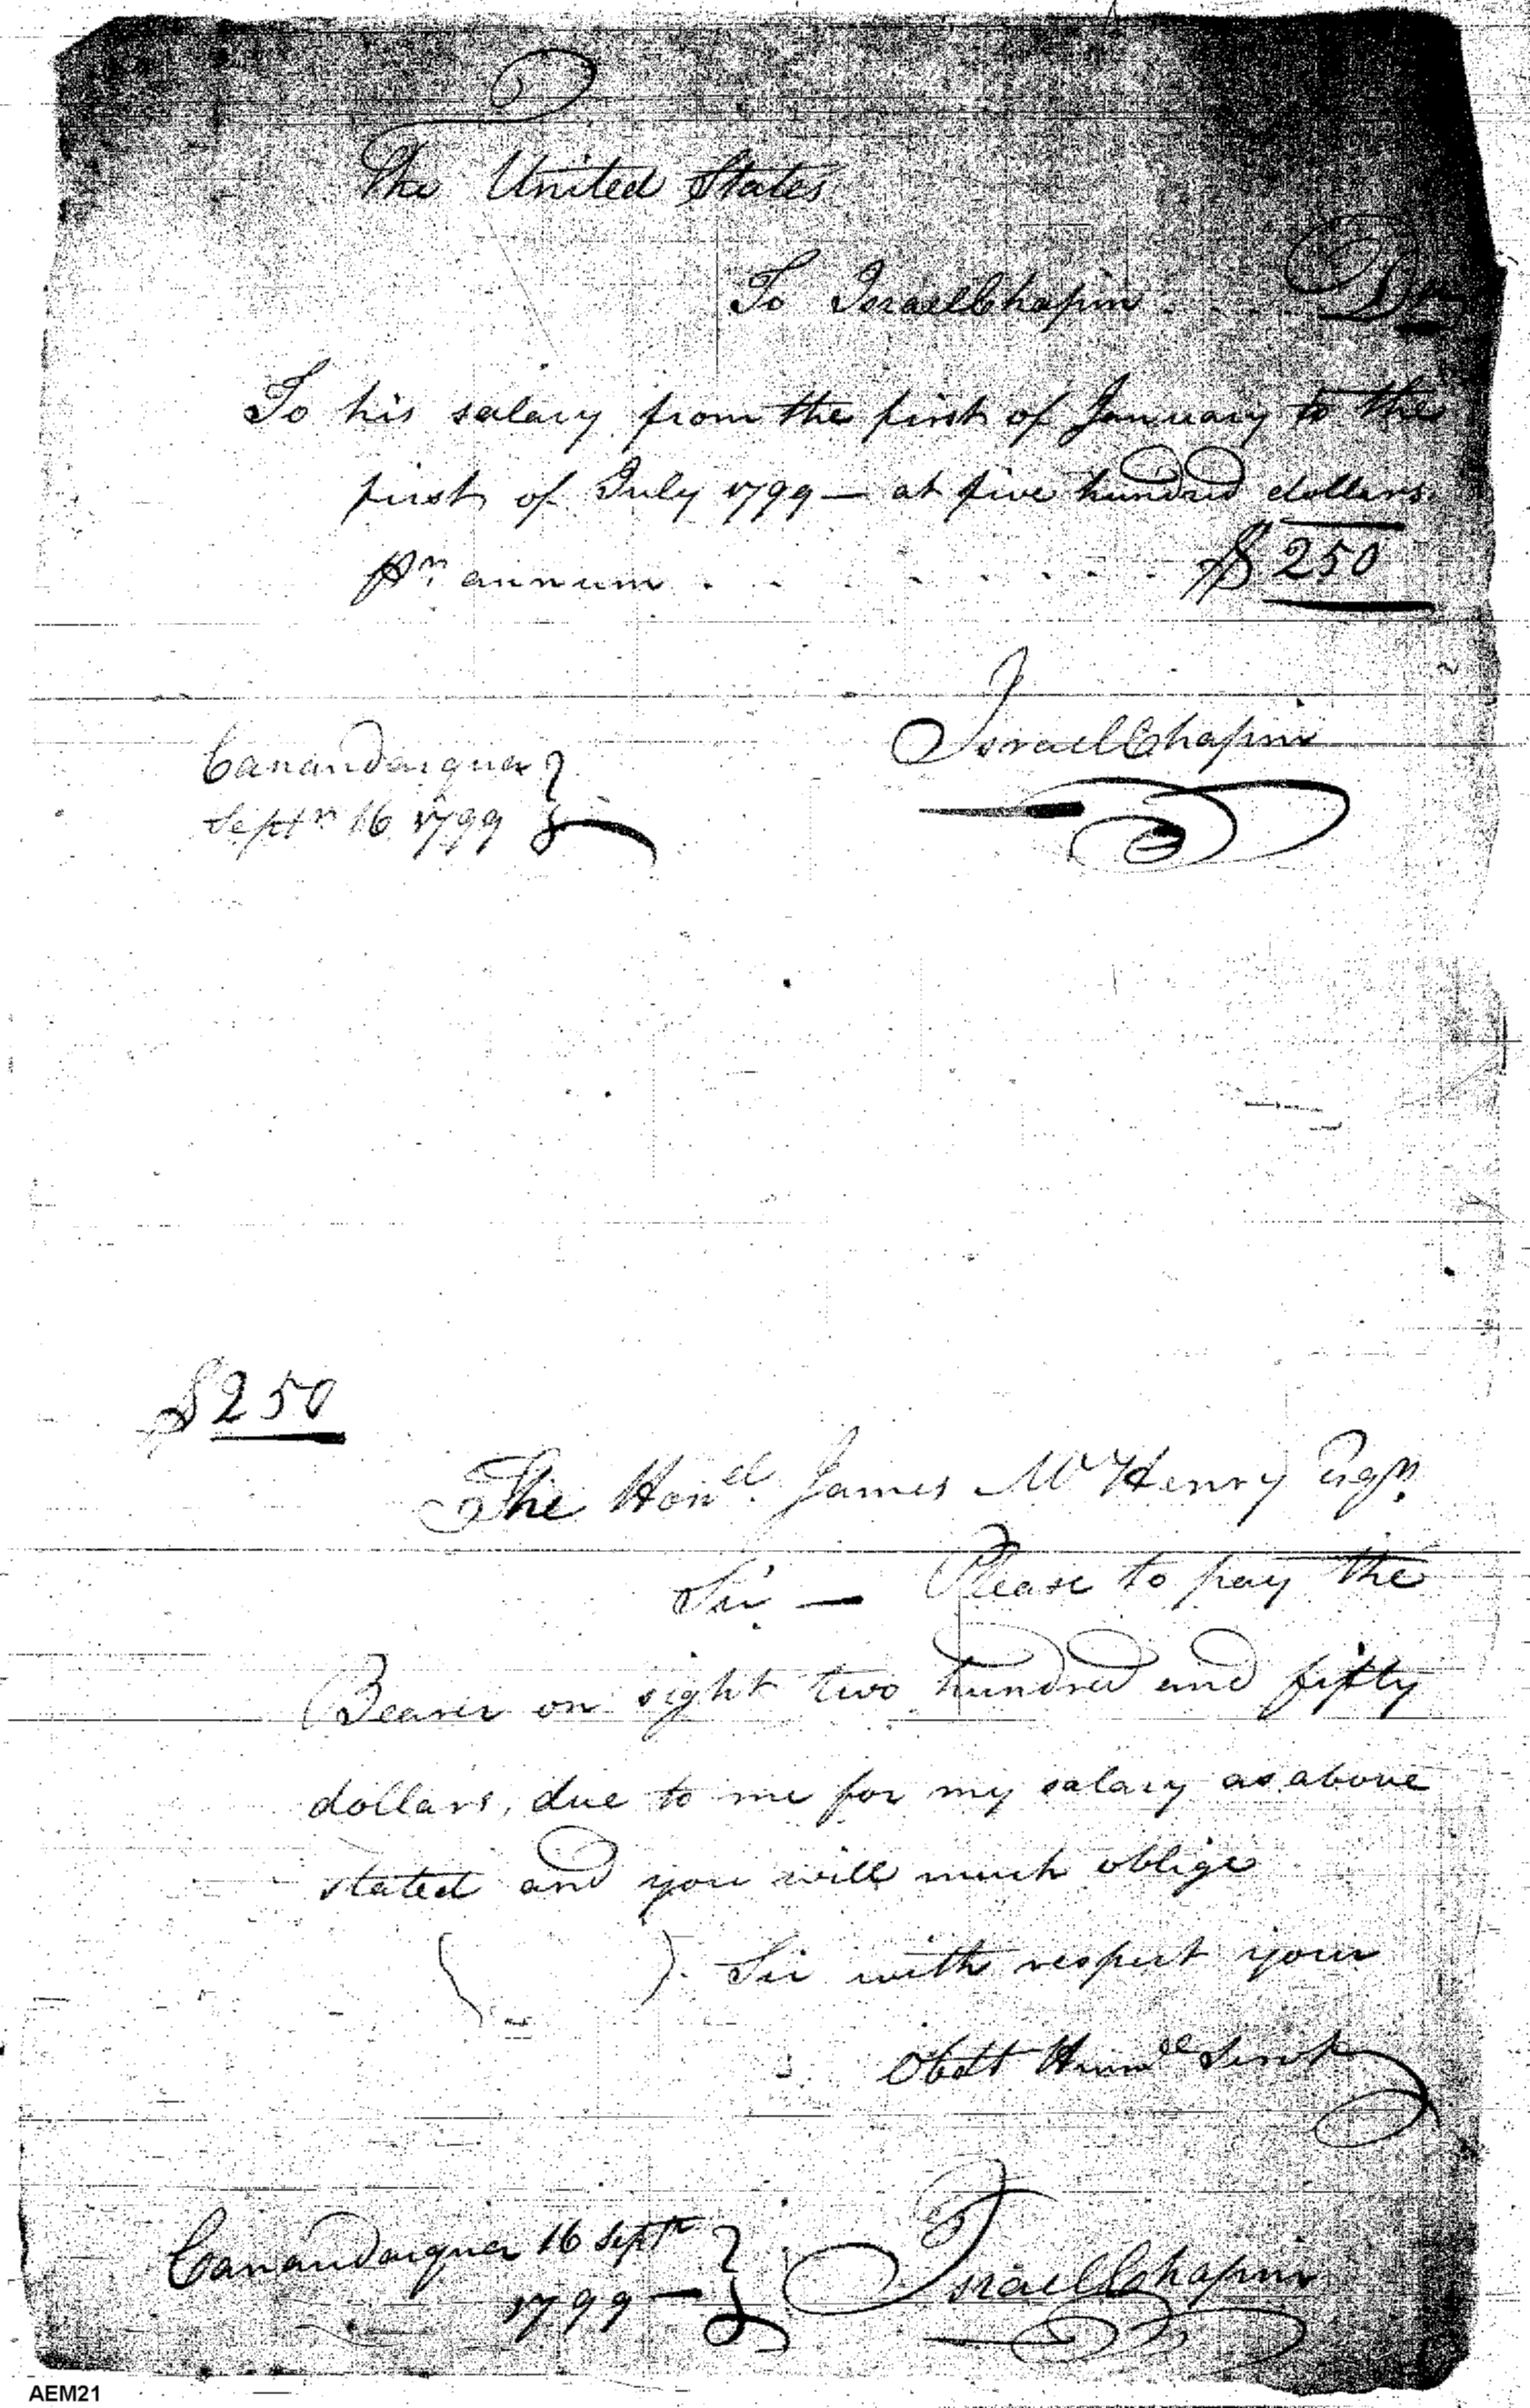 The United States
To Israel Chapin . . . . Dr
To his salary from the first of January to the
first of July 1799 — at five hundred dollars
Pr. annum . . . . . . . . $ 250
Israel Chapin
Canandaigua }
Septr 16 1799 }
$250
The Honel. James McHenry Esqr.
Sir — Please to pay the
Bearer on sight two hundred and fifty
dollars, due to me for my salary as above
stated and you will much oblige
( ). Sir with respect your
Obdt Humle Servt
Canandaigua 16 Septr
1799 — }
Israel Chapin
AEM21